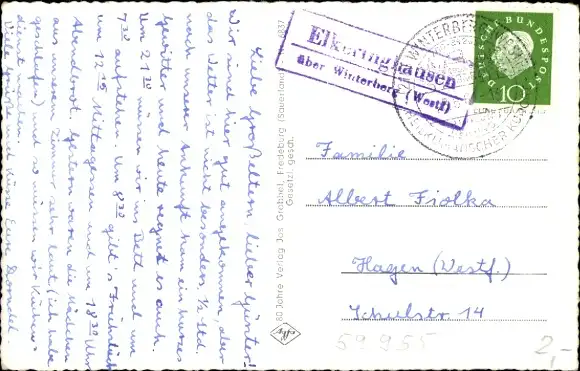 Liebe Großeltern, lieber Günter!
Wir sind hier gut angekommen, aber
das Wetter ist nicht besonders. ½ Std.
nach unserer Ankunft kam ein kurzes
Gewitter und heute regnet es auch.
Um 21 30 müssen wir ins Bett und um
7 30 aufstehen. Um 8 30 gibt's Frühstück
um 12 15 Mittagessen und um 18 30 Uhr
Abendbrot. Gestern waren die Mädchen
aus unserem Zimmer sehr laut (ich habe
geschlafen) und so müssen wir Küchen-
dienst machen.
Viele Grüße und Küsse Eure
80 Jahre Verlag Jos. Grobbel, Fredeburg (Sauerland)
Gesetzl. gesch.
6837
Agfa
Elkeringhausen
über Winterberg (Westf)
WINTERBERG
DEUTSCHE BUNDESPOST
10
Familie
Albert Fiolka
Hagen (Westf.)
Schulstr 14
59955
2,-